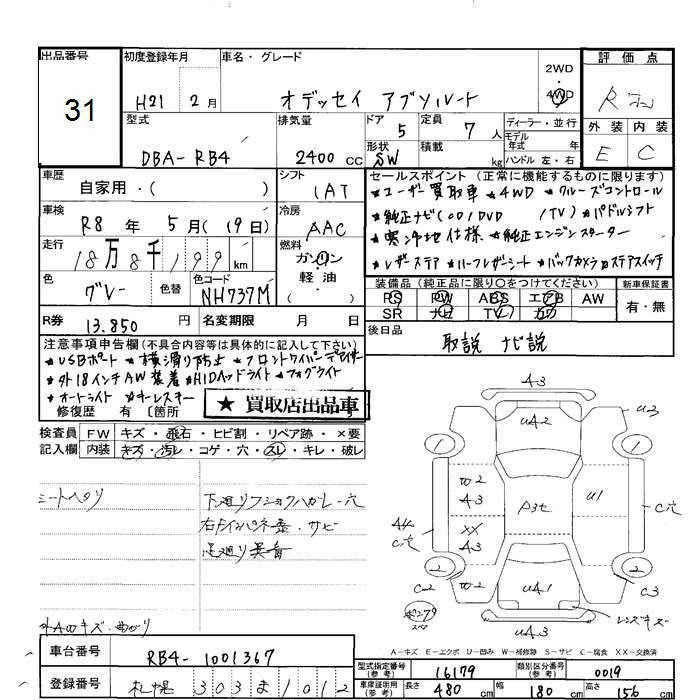 出品番号
31
初度登録年月
H21 2月
車名・グレード
オデッセイ アブソルート
2WD
・
4WD
評価点
R
外装 内装
E C
型式
DBA-RB4
排気量
2400 cc
ドア
5
形状
SW
定員
7 人
積載
kg
ディーラー・並行
モデル
年式 年
ハンドル 左・右
車歴
自家用・( )
シフト
1AT
車検
R8 年 5月(19日)
冷房
AAC
走行
18万8千199 km
燃料
ガソリン
軽油
( )
色
グレー
色替
色コード
NH737M
R券
13,850 円
名変期限 月 日
セールスポイント (正常に機能するものに限ります)
★ユーザー買取車 ★4WD ★クルーズコントロール
★純正ナビ(CD/DVD /TV) ★パドルシフト
★寒冷地仕様 ★純正エンジンスターター
★レザーステア ★ハーフレザーシート ★バックカメラ ★ステアスイッチ
装備品 (純正品に限り○をつけてください)
新車保証書
PS PW ABS エアB AW
SR ナビ TV カワ
有・無
後日品
取説 ナビ説
注意事項申告欄(不具合内容等は具体的に記入して下さい)
★USBポート ★横滑り防止 ★フロントワイパーデアイサー
★外18インチAW装着 ★HIDヘッドライト ★フォグライト
★オートライト ★キーレスキー
修復歴 有 〔箇所
★ 買取店出品車
検査員
記入欄
FW キズ・飛石・ヒビ割・リペア跡・×要
内装 キズ・汚レ・コゲ・穴・スレ・キレ・破レ
シートヘタリ
下廻りフショクハガレ・穴
右Fインパネ恭・サビ
足廻り異音
外AWキズ・曲がり
A3
U42
U3
1
1
W2
A3
P3セ
U1
XX
A3
A4
C穴
C穴
2
2
W2
C2
U41
C3
U43
レンズキズ
A-キズ E-エクボ U-凹み W-補修跡 S-サビ C-腐食 XX-交換済
車台番号
RB4-1001367
登録番号
札幌 303 ま 1012
型式指定番号
(参考)
16179
類別区分番号
(参考)
0019
車庫証明用
(参考)
長さ 480 cm 幅 180 cm 高さ 156 cm